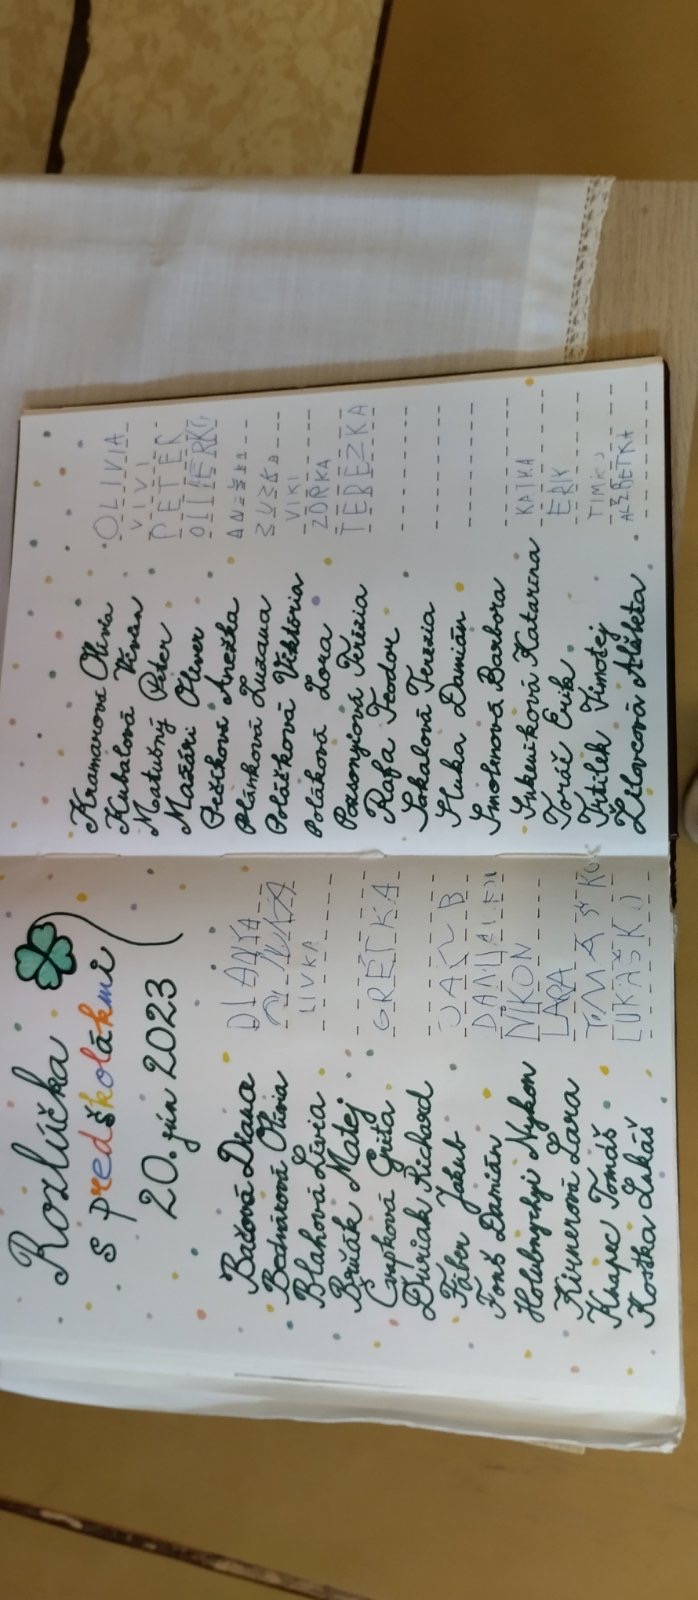 Rozlúčka
s predškolákmi
20. jún 2023
Bačová Diana DIANA
Bednárová Olívia
Blahová Lívia LIVKA
Brťák Matej
Csipková Gréta GRÉTKA
Duriak Richard
Fáber Jakub JAKUB
Fonš Damián DAMIÁN
Holubnychyi Nykon NIKON
Kirnerová Lara LARA
Knapec Tomáš TOMÁŠKO
Kostka Lukáš LUKÁŠKO
Kramárová Olívia OLIVIA
Kubalová Vivien VIVI
Matučný Peter PETER
Mažári Oliver OLIVERKO
Pešíková Anežka ANEŽKA
Plánková Zuzana ZUZKA
Polášková Viktória VIKI
Poláková Zora ZORKA
Pozsonyiová Terézia TEREZKA
Rafa Teodor
Sokolová Terézia
Sluka Damián
Smolenová Barbora
Sukeníková Katarína KATKA
Toráč Erik ERIK
Trtílek Timotej TIMKO
Žilovcová Alžbeta ALŽBETKA